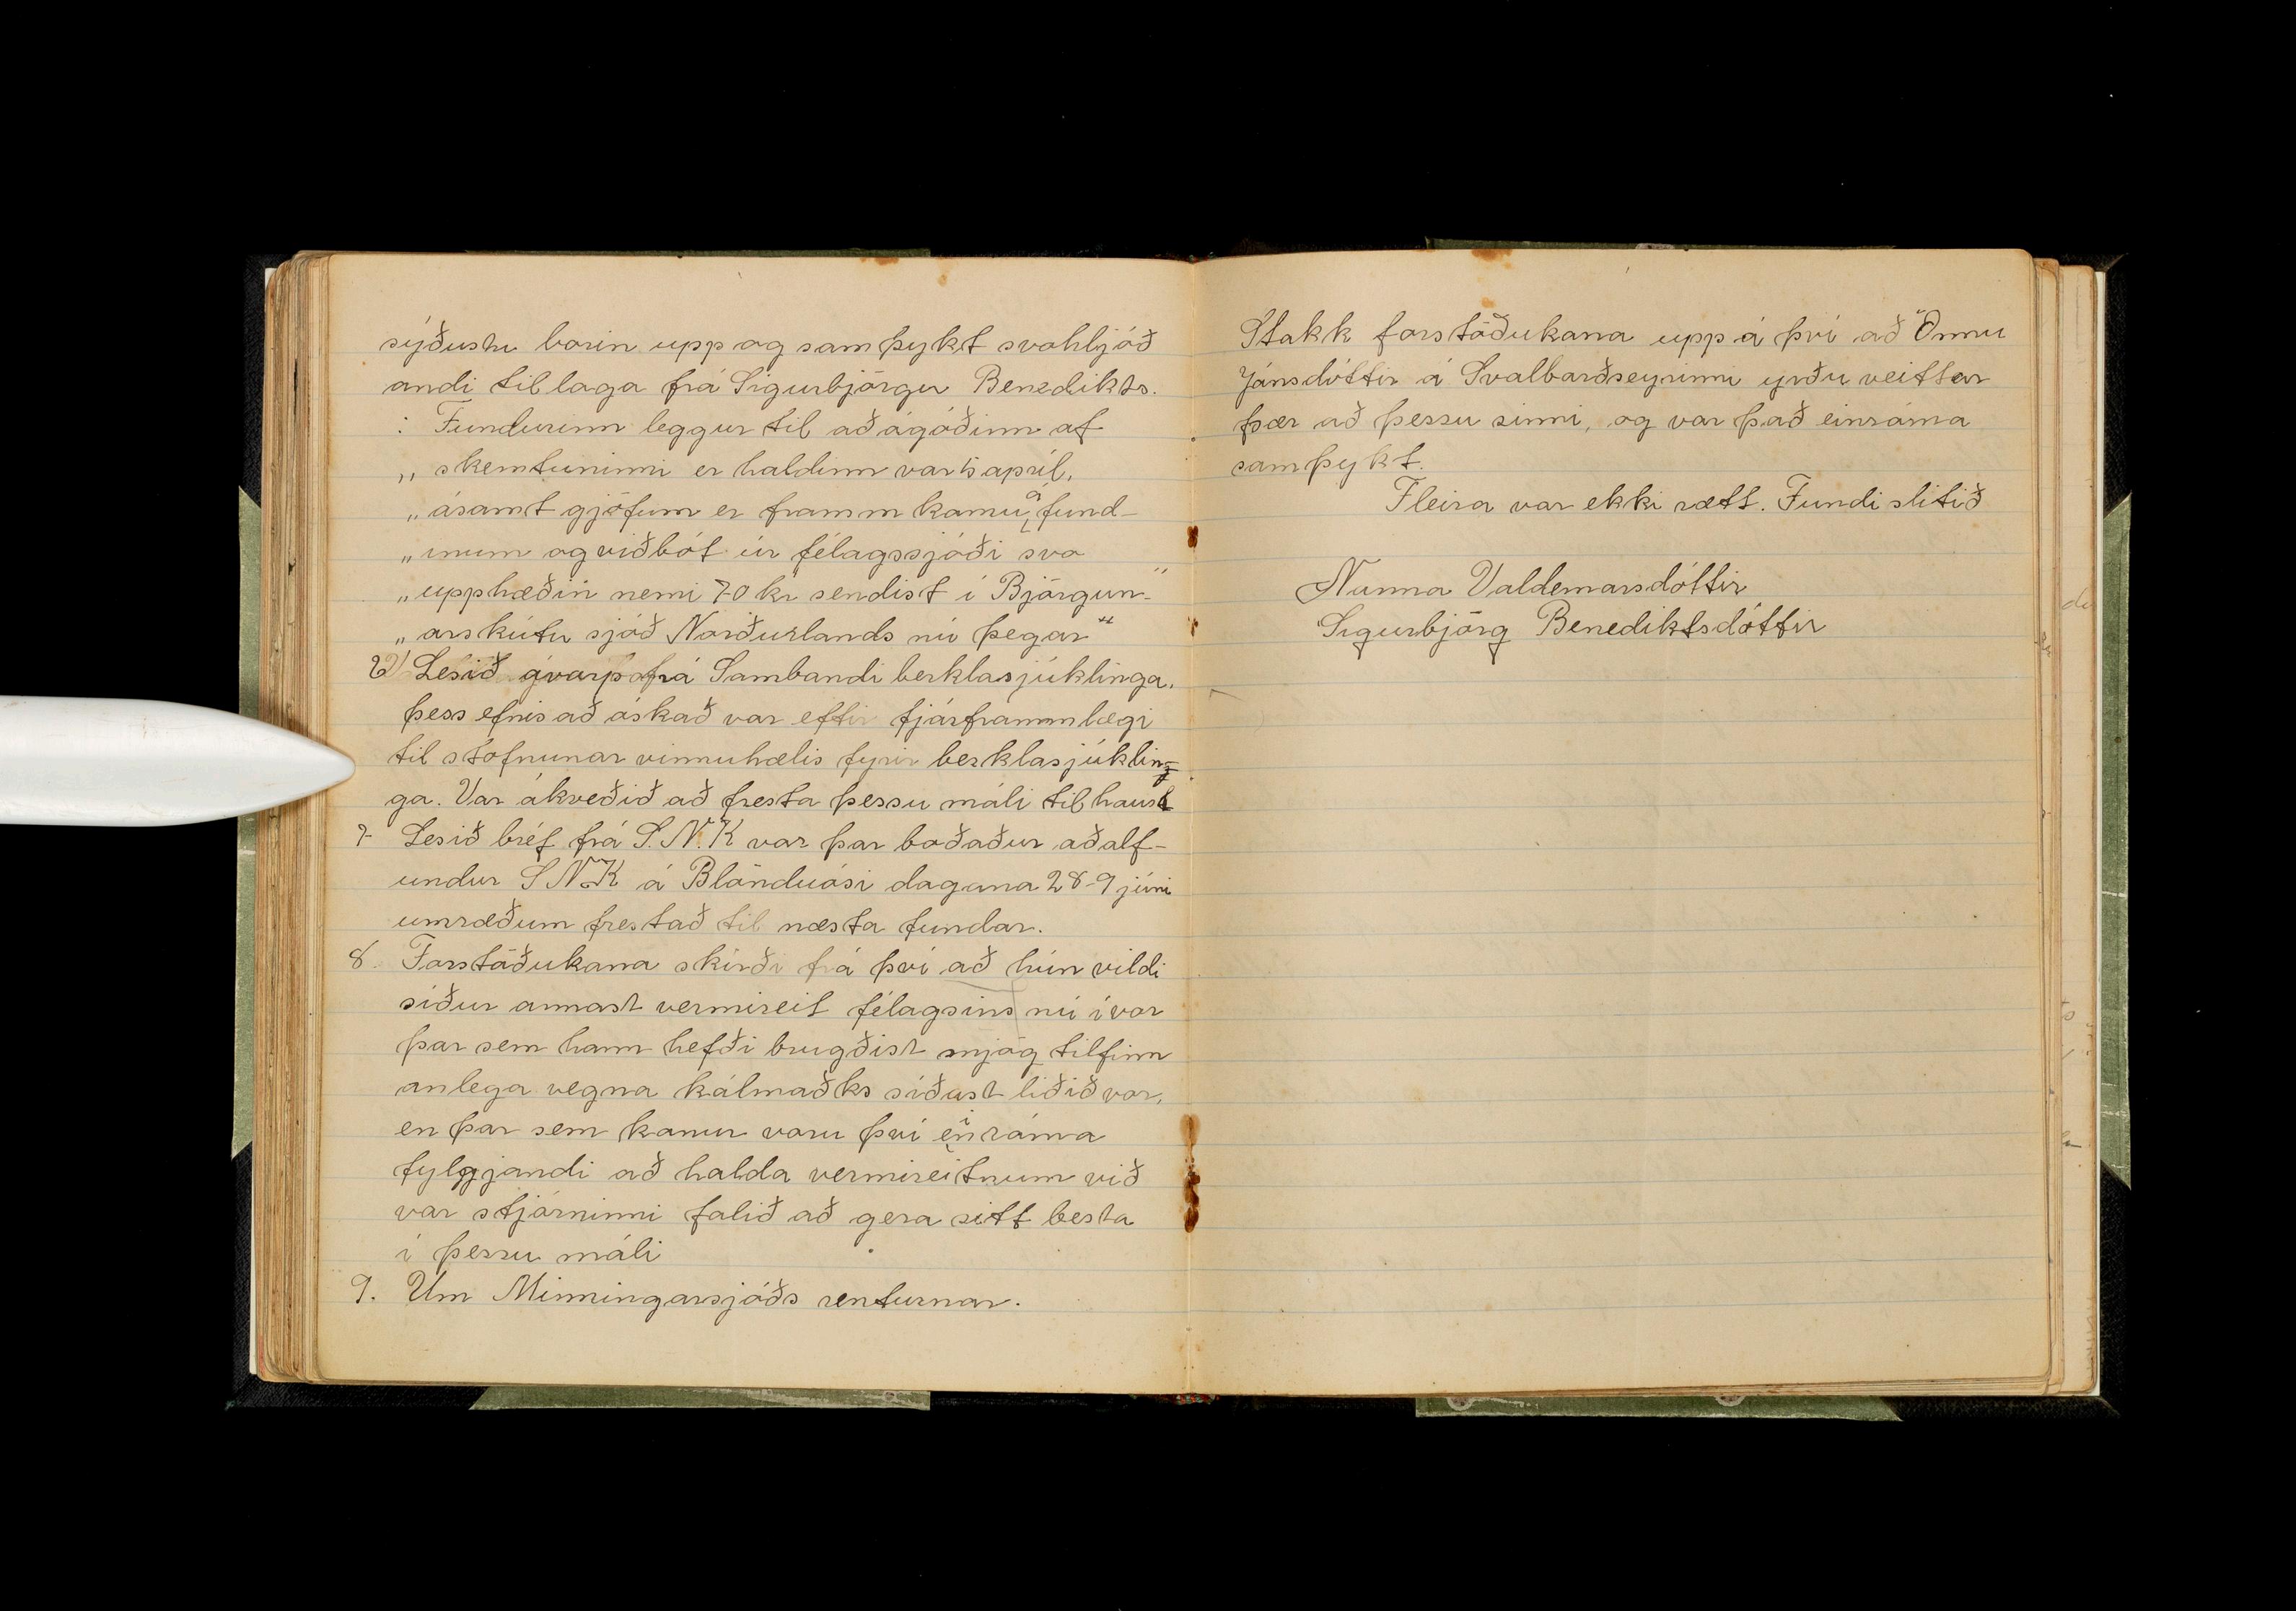 sýðustu borin upp og samþykt svohljóð
andi tillaga frá Sigurbjörgu Benedikts.
: Fundurinn leggur til að ágóðinn af
„ skemtuninni er haldinn var 15 apríl,
„ ásamt gjöfum er framm komu á fund-
„ inum og viðbót úr félagssjóði svo
„ upphæðin nemi 70 kr sendist í Björgun-
„ arskútu sjóð Norðurlands nú þegar“
6) Lesið ávarp frá Sambandi berklasjúklinga,
þess efnis að óskað var eftir fjárframmlægi
til stofnunar vinnuhælis fyrir berklasjúklin-
ga. Var ákveðið að fresta þessu máli til haust
7 Lesið bréf frá S.N.K var þar boðaður aðalf-
undur SNK á Blönduósi dagana 28-9 júní
umræðum frestað til næsta fundar.
8. Forstöðukona skírði frá því að hún vildi
síður annast vermireit félagsins nú í vor
þar sem hann hefði brugðist mjög tilfinn
anlega vegna kálmaðks síðast liðið vor,
en þar sem konur voru því einróma
fylgjandi að halda vermireitnum við
var stjórninni falið að gera sitt besta
í þessu máli
9. Um Minningarsjóðs renturnar.
Stakk forstöðukona uppá því að Önnu
Jónsdóttir á Svalbarðseyrinni yrðu veittar
þær að þessu sinni, og var það einróma
samþykt.
Fleira var ekki rætt. Fundi slitið
Nunna Valdemarsdóttir
Sigurbjörg Benediktsdóttir